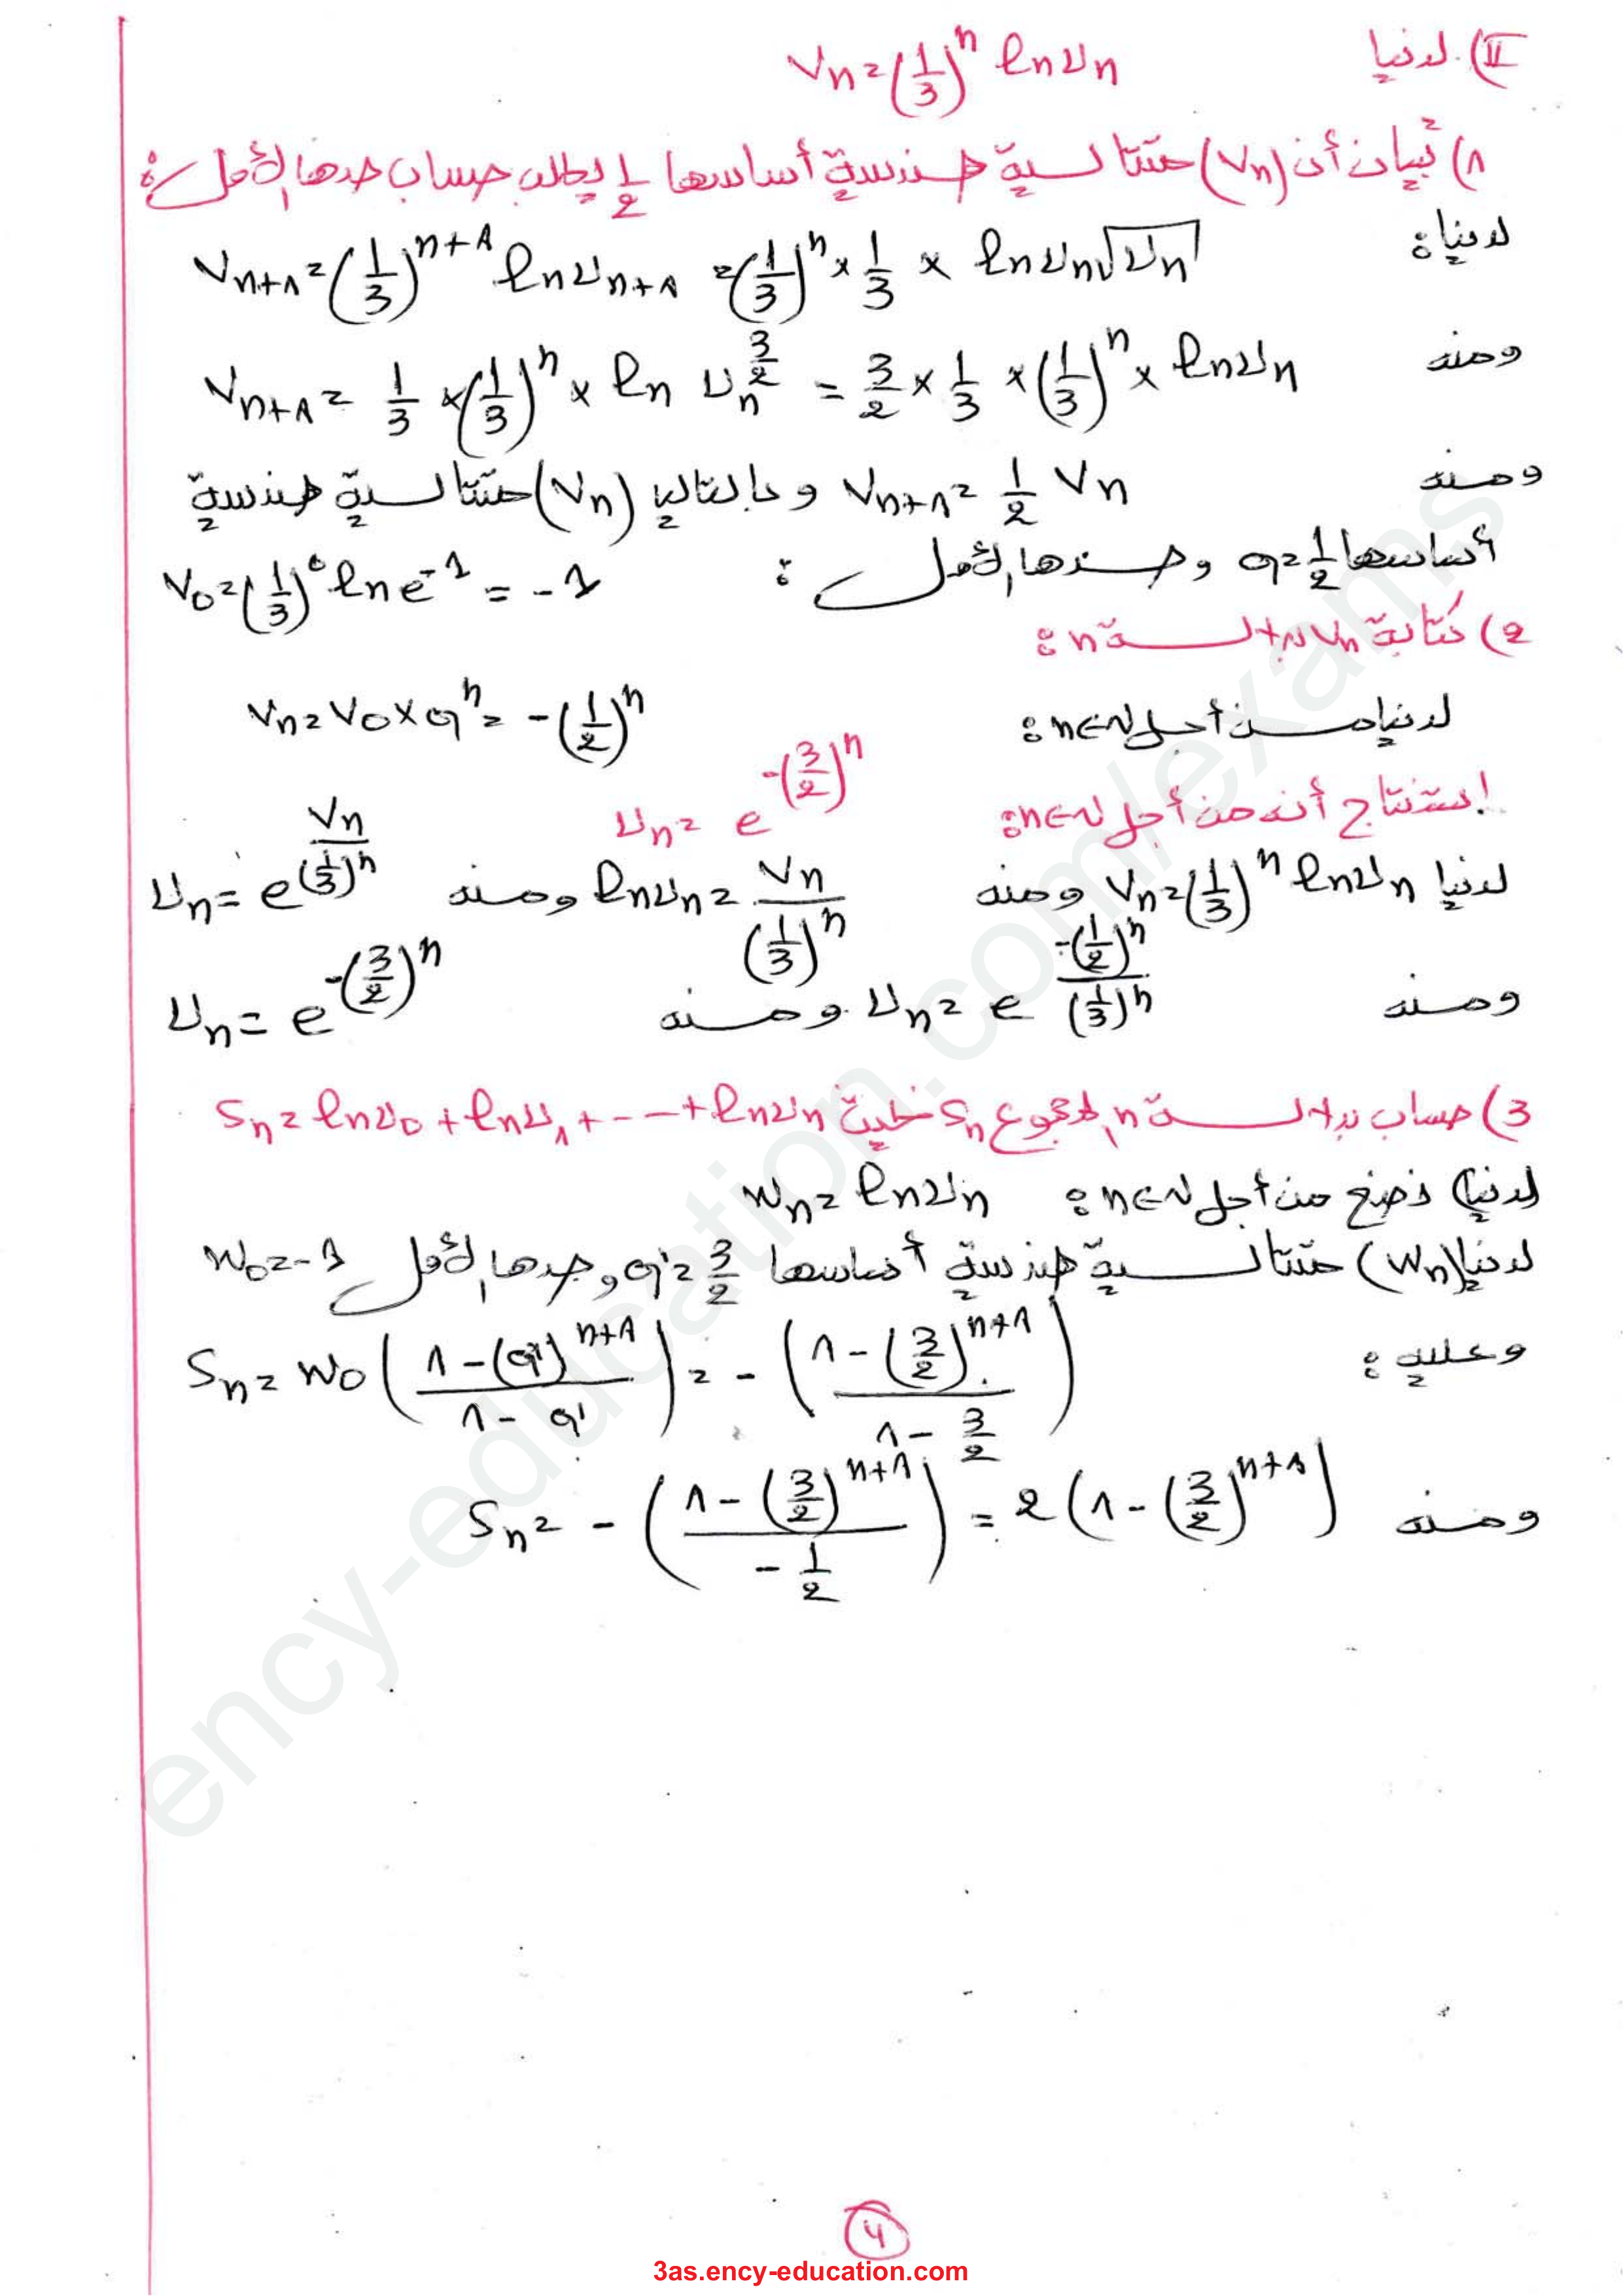 II) لدينا Vn = (1/3)^n ln Un
1) تبيان أن (Vn) متتالية هندسية أساسها 1/2 يطلب حساب حدها الأول:
لدينا: Vn+1 = (1/3)^(n+1) ln Un+1 = (1/3)^n × 1/3 × ln Un√Un
ومنه Vn+1 = 1/3 × (1/3)^n × ln Un^(3/2) = 3/2 × 1/3 × (1/3)^n × ln Un
ومنه Vn+1 = 1/2 Vn وبالتالي (Vn) متتالية هندسية
أساسها q = 1/2 وحدها الأول: V0 = (1/3)^0 ln e^-1 = -1
2) كتابة Vn بدلالة n:
لدينا من أجل n∈ℕ: Vn = V0 × q^n = -(1/2)^n
إستنتاج أنه من أجل n∈ℕ: Un = e^(-(3/2)^n)
لدينا Vn = (1/3)^n ln Un ومنه ln Un = Vn/(1/3)^n ومنه Un = e^(Vn/(1/3)^n)
ومنه Un = e^(-(1/2)^n/(1/3)^n) ومنه Un = e^(-(3/2)^n)
3) حساب بدلالة n المجموع Sn حيث Sn = ln U0 + ln U1 + --- + ln Un
لدينا نضع من أجل n∈ℕ: Wn = ln Un
لدينا (Wn) متتالية هندسية أساسها q' = 3/2 وحدها الأول W0 = -1
وعليه: Sn = W0 ((1-(q')^(n+1))/(1-q')) = -((1-(3/2)^(n+1))/(1-3/2))
ومنه Sn = -((1-(3/2)^(n+1))/(-1/2)) = 2(1-(3/2)^(n+1))
4
3as.ency-education.com
ency-education.com/exams